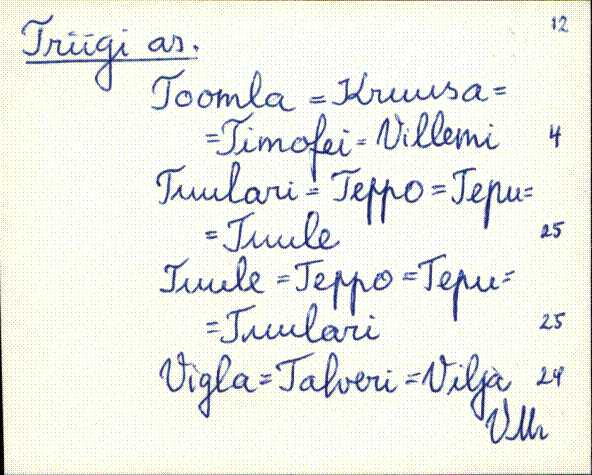 12
Triigi as.
Toomla = Kruusa =
= Timofei = Villemi 4
Tuulari = Teppo = Tepu =
= Tuule 25
Tuule = Teppo = Tepu =
= Tuulari 25
Vigla = Talveri = Vilja 24